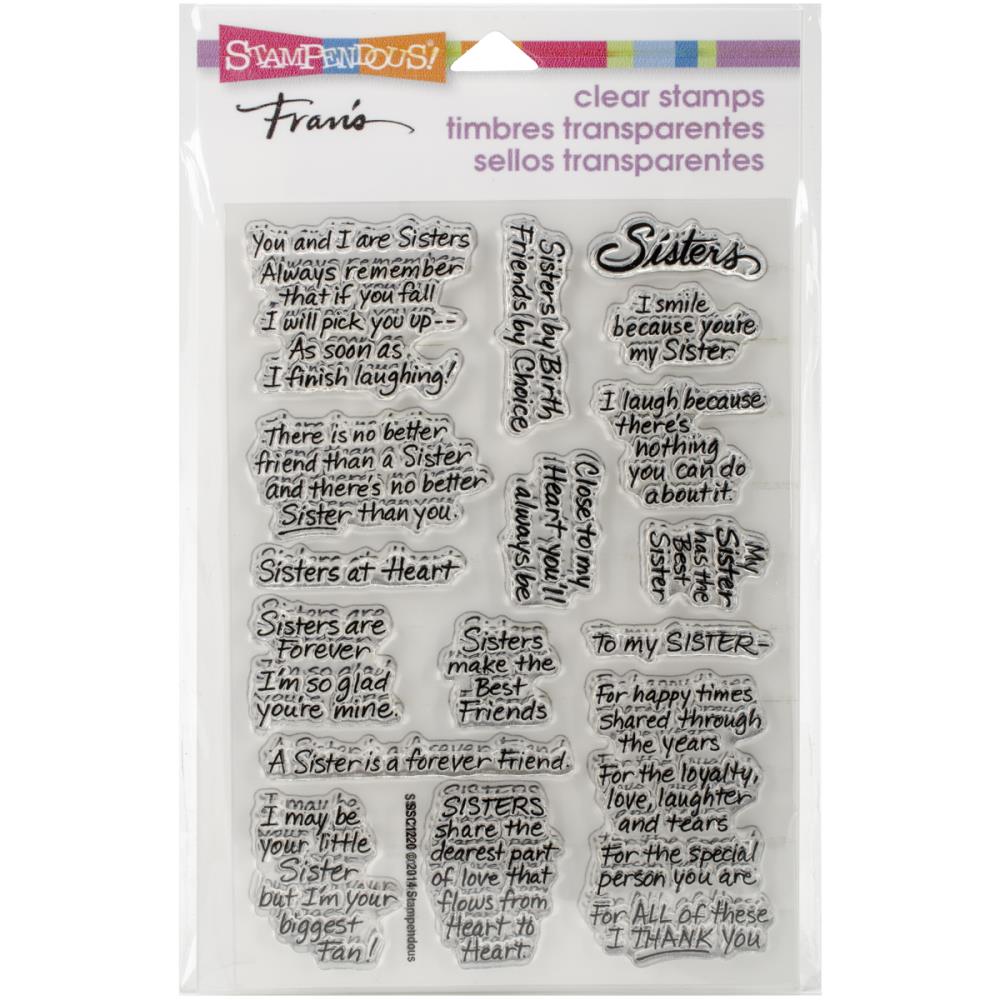 STAMPENDOUS!
Fran's
clear stamps
timbres transparentes
sellos transparentes
You and I are Sisters
Always remember
that if you fall
I will pick you up--
As soon as
I finish laughing!
Sisters by Birth
Friends by Choice
Sisters
I smile
because you're
my Sister.
I laugh because
there's
nothing
you can do
about it.
There is no better
friend than a Sister
and there's no better
Sister than you.
Close to my
Heart you'll
always be
My
Sister
has the
Best
Sister
Sisters at Heart
Sisters are
Forever
I'm so glad
you're mine.
Sisters
make the
Best
Friends
To my SISTER-
For happy times
shared through
the years
For the loyalty,
love, laughter
and tears
For the special
person you are
For ALL of these
I THANK YOU
A Sister is a forever Friend.
I may be
your little
Sister
but I'm your
biggest
Fan!
SSC1220 ©2014 Stampendous
SISTERS
share the
dearest part
of love that
flows from
Heart to
Heart.